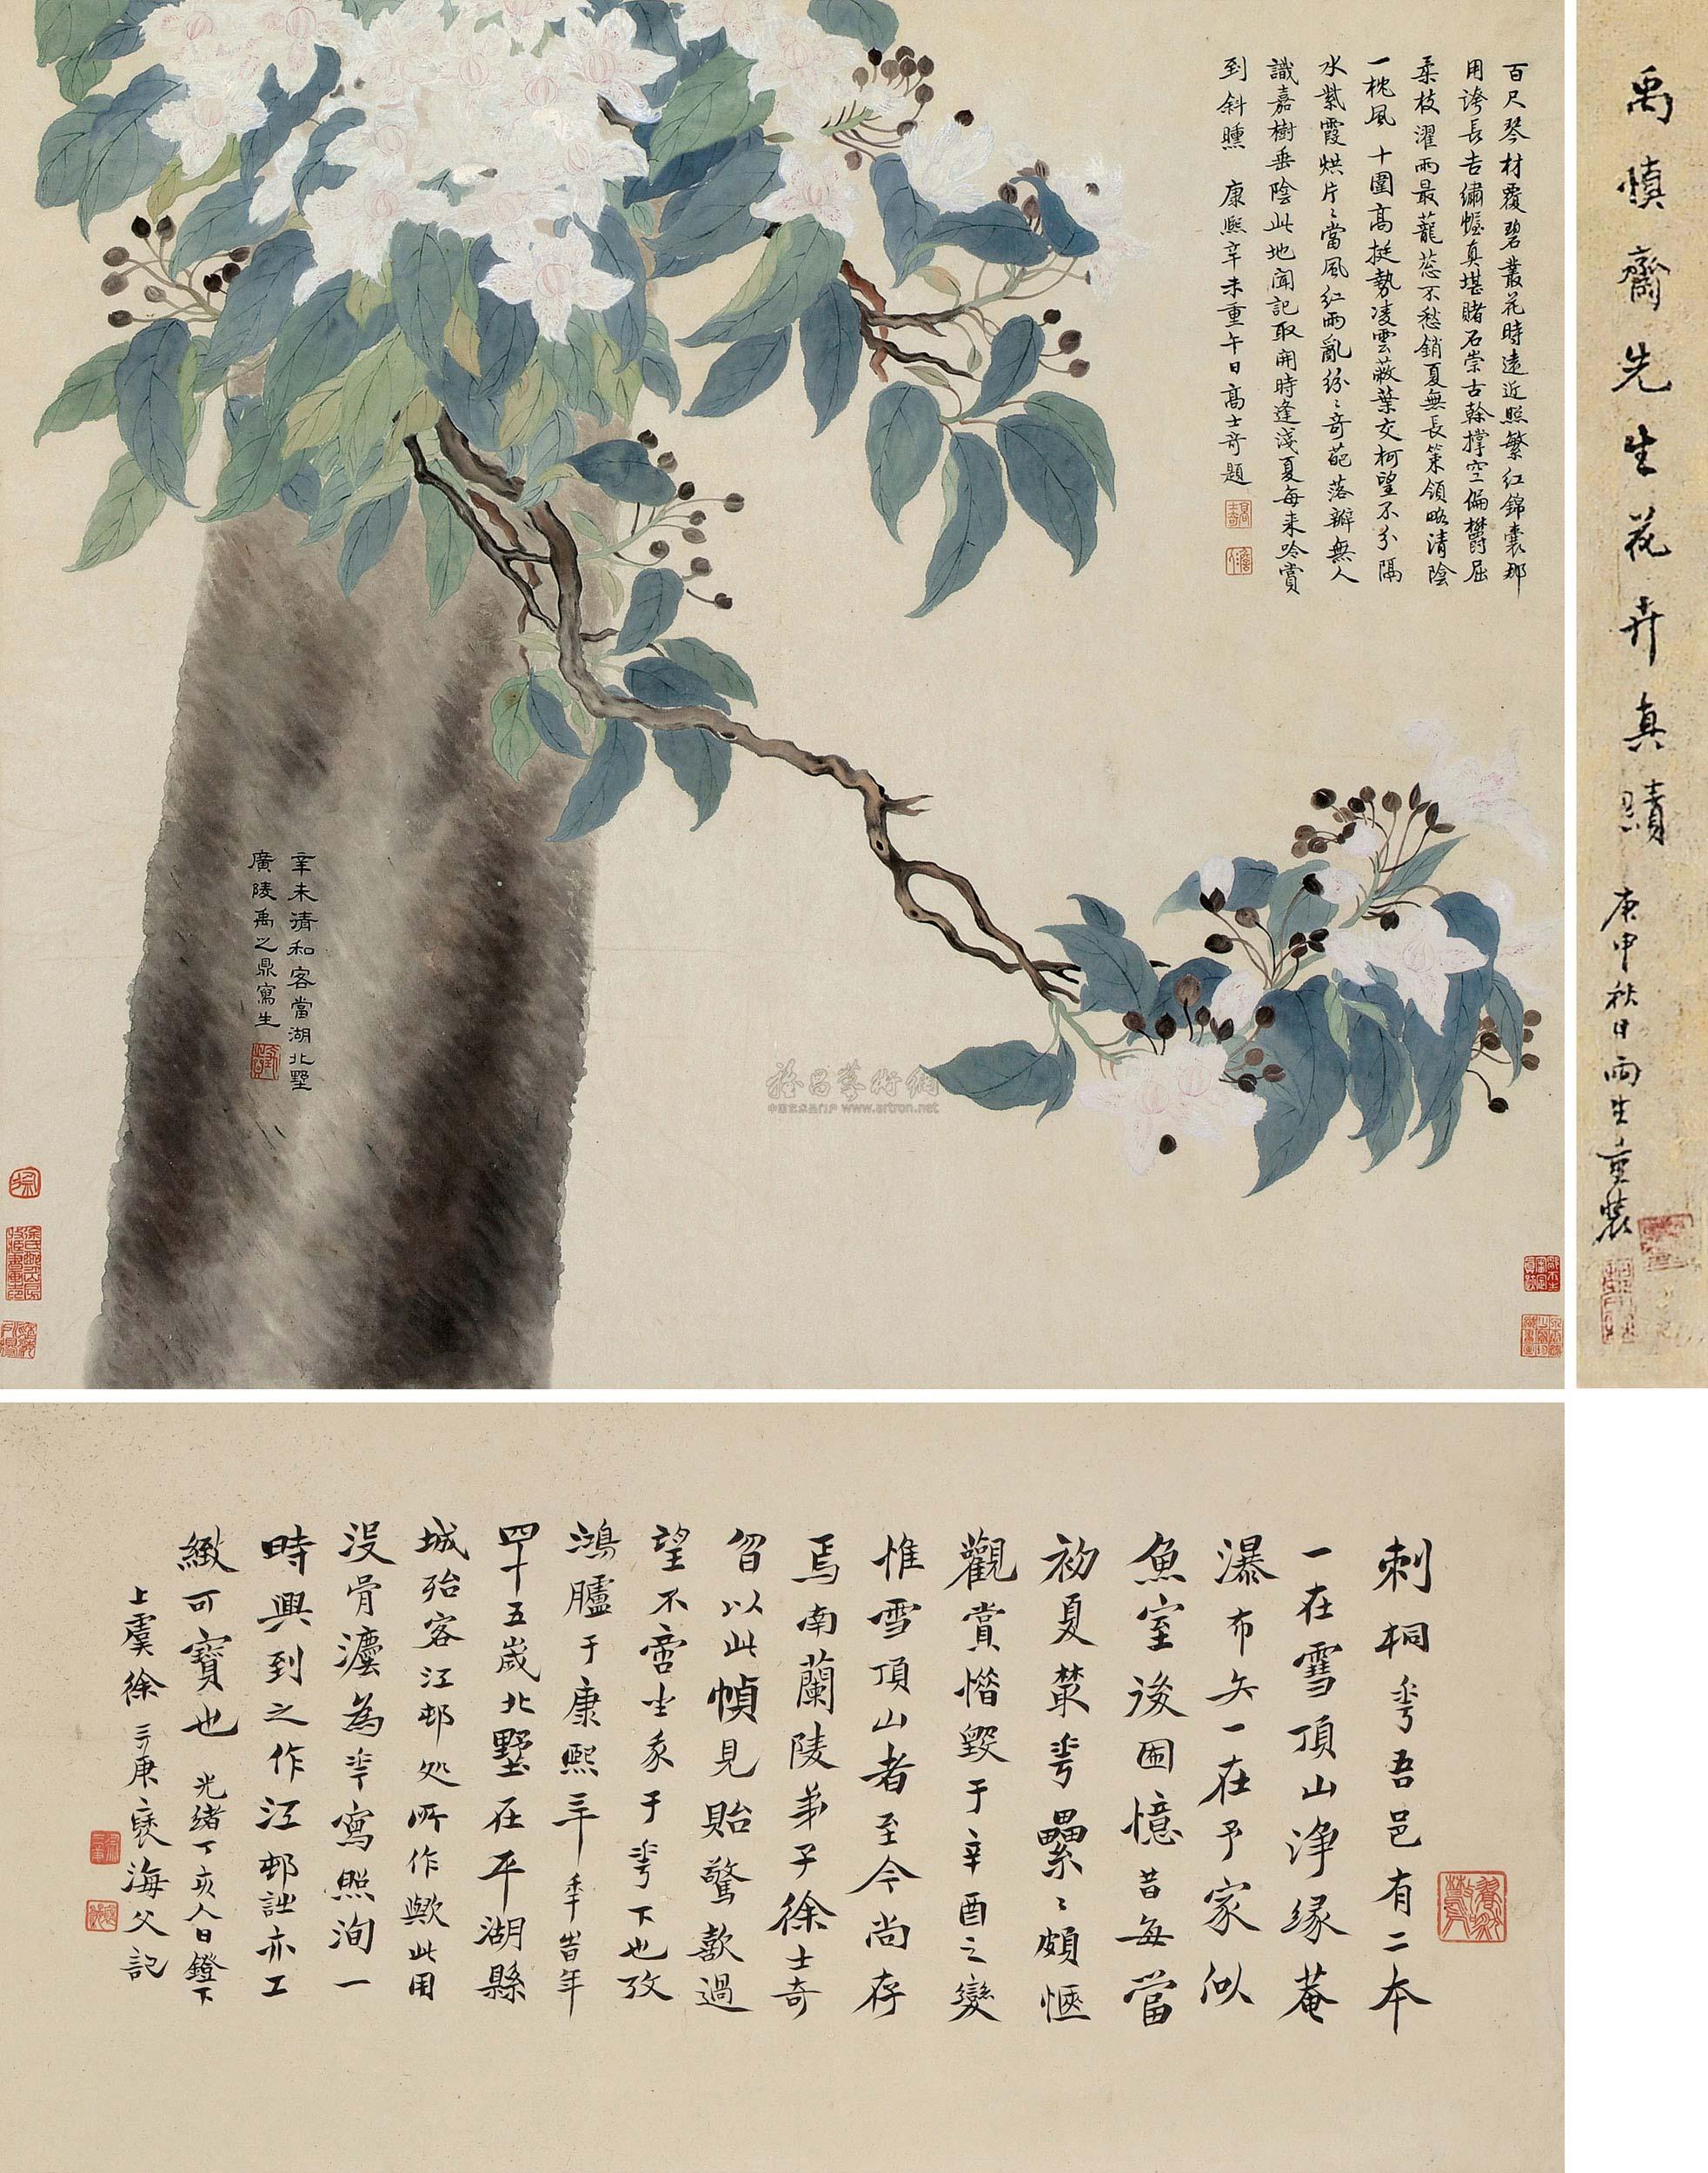 百尺琴材覆碧叢花時遠近照繁紅錦囊那
用誇長吉繡幄真堪賭石崇古榦撐空偏欝屈
柔枝濯雨最蘢蔥不愁銷夏無長策領略清陰
一枕風 十圍高挺勢凌雲蔽葉交柯望不分隔
水紫霞烘片〻當風紅雨亂紛〻奇葩落瓣無人
識嘉樹垂陰此地聞記取開時逢淺夏每来吟賞
到斜曛 康熙辛未重午日高士奇題
辛未清和客當湖北墅
廣陵禹之鼎寫生
禹慎齋先生花卉真蹟
庚申秋日雨生重裝
刺桐花吾邑有二本
一在雪頂山浄缘菴
瀑布矢一在予家似
魚室後圃憶昔每當
初夏䕺花纍〻頗愜
觀賞惜毀于辛酉之變
惟雪頂山者至今尚存
焉南蘭陵弟子徐士奇
㫚以此幀見貽驚歎過
望不啻坐象于花下也攷
鴻臚于康熙三年 年
四十五歲北墅在平湖縣
城殆客江邨処所作歟此用
没骨灋為花寫照洵一
時興到之作江邨詿亦工
緻可寶也 光緒丁亥人日鐙下
上虞徐三庚褎海父記
中国艺术品门户 www.artron.net